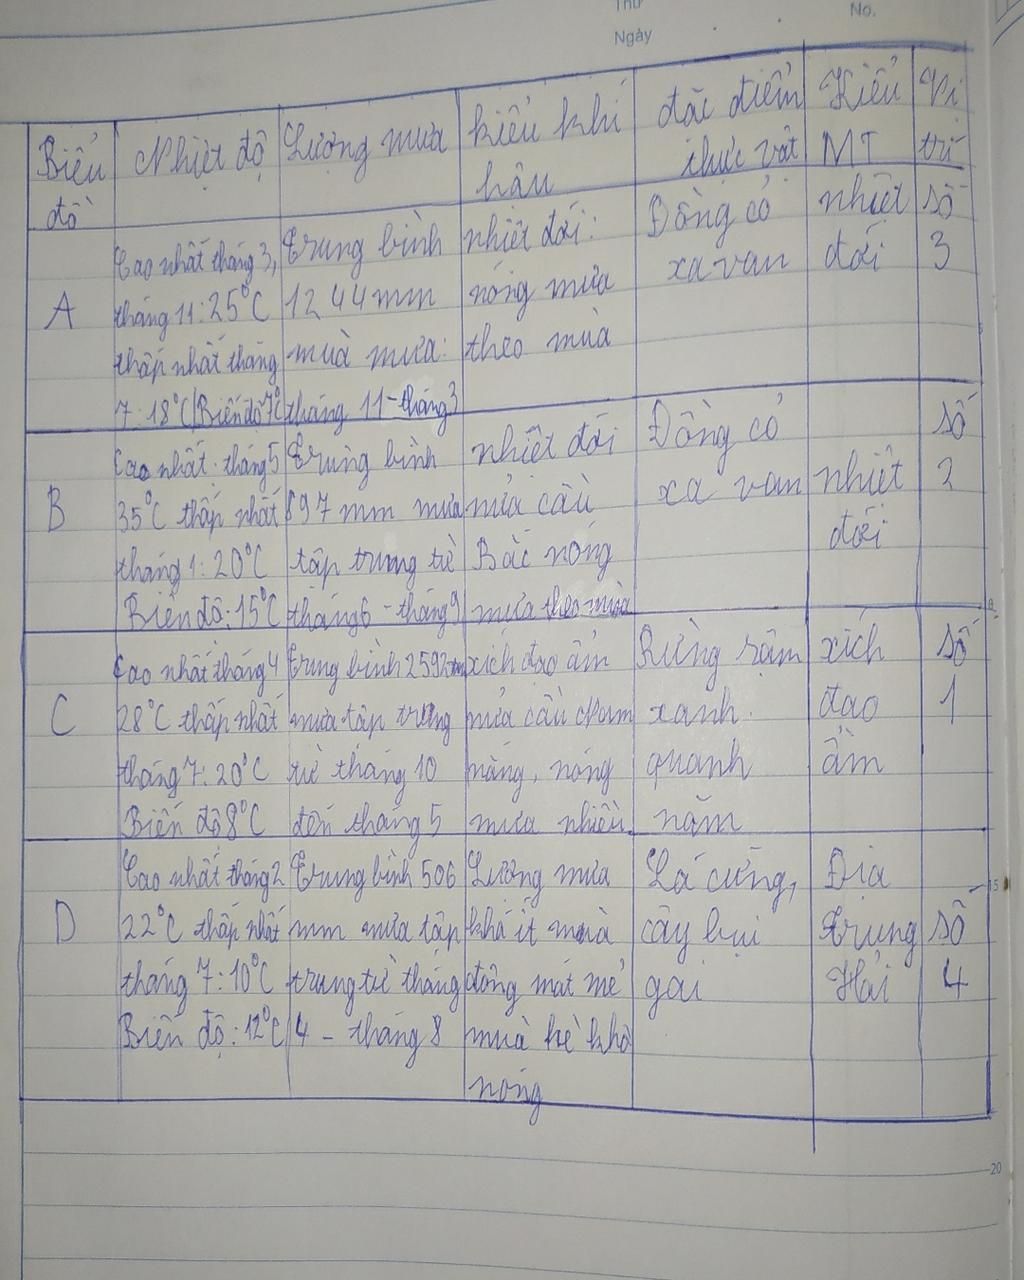 Thứ
Ngày
No.
Biểu đồ | Nhiệt độ | Lượng mưa | kiểu khí hậu | đặc điểm thực vật | Kiểu MT | Vị trí
A | Cao nhất tháng 3, | Trung bình | nhiệt đới: | Đồng cỏ | nhiệt | số
tháng 11: 25°C | 1244mm | nóng mưa | xa van | đới | 3
thấp nhất tháng | mùa mưa: | theo mùa
7: 18°C/Biến độ 7°C | tháng 11 - tháng 3
B | Cao nhất: tháng 5 | Trung bình | nhiệt đới | Đồng cỏ | số
35°C thấp nhất | 897 mm mưa | nửa cầu | xa van | nhiệt | 2
tháng 1: 20°C | tập trung từ | Bắc nóng | đới
Biên độ: 15°C | tháng 6 - tháng 9 | mưa theo mùa
C | Cao nhất tháng 4 | Trung bình 2592mm | xích đạo ẩm | Rừng rậm | xích | số
28°C thấp nhất | mưa tập trung | nửa cầu Nam | xanh | đạo | 1
tháng 7: 20°C | từ tháng 10 | nắng, nóng | quanh | ẩm
Biến độ 8°C | đến tháng 5 | mưa nhiều | năm
D | Cao nhất tháng 2 | Trung bình 506 | Lượng mưa | Lá cứng, | Địa
22°C thấp nhất | mm mưa tập | khá ít mùa | cây bụi | Trung | số
tháng 7: 10°C | trung từ tháng | đông mát mẻ | gai | Hải | 4
Biến độ: 12°C | 4 - tháng 8 | mùa hè khô
nóng
15
20